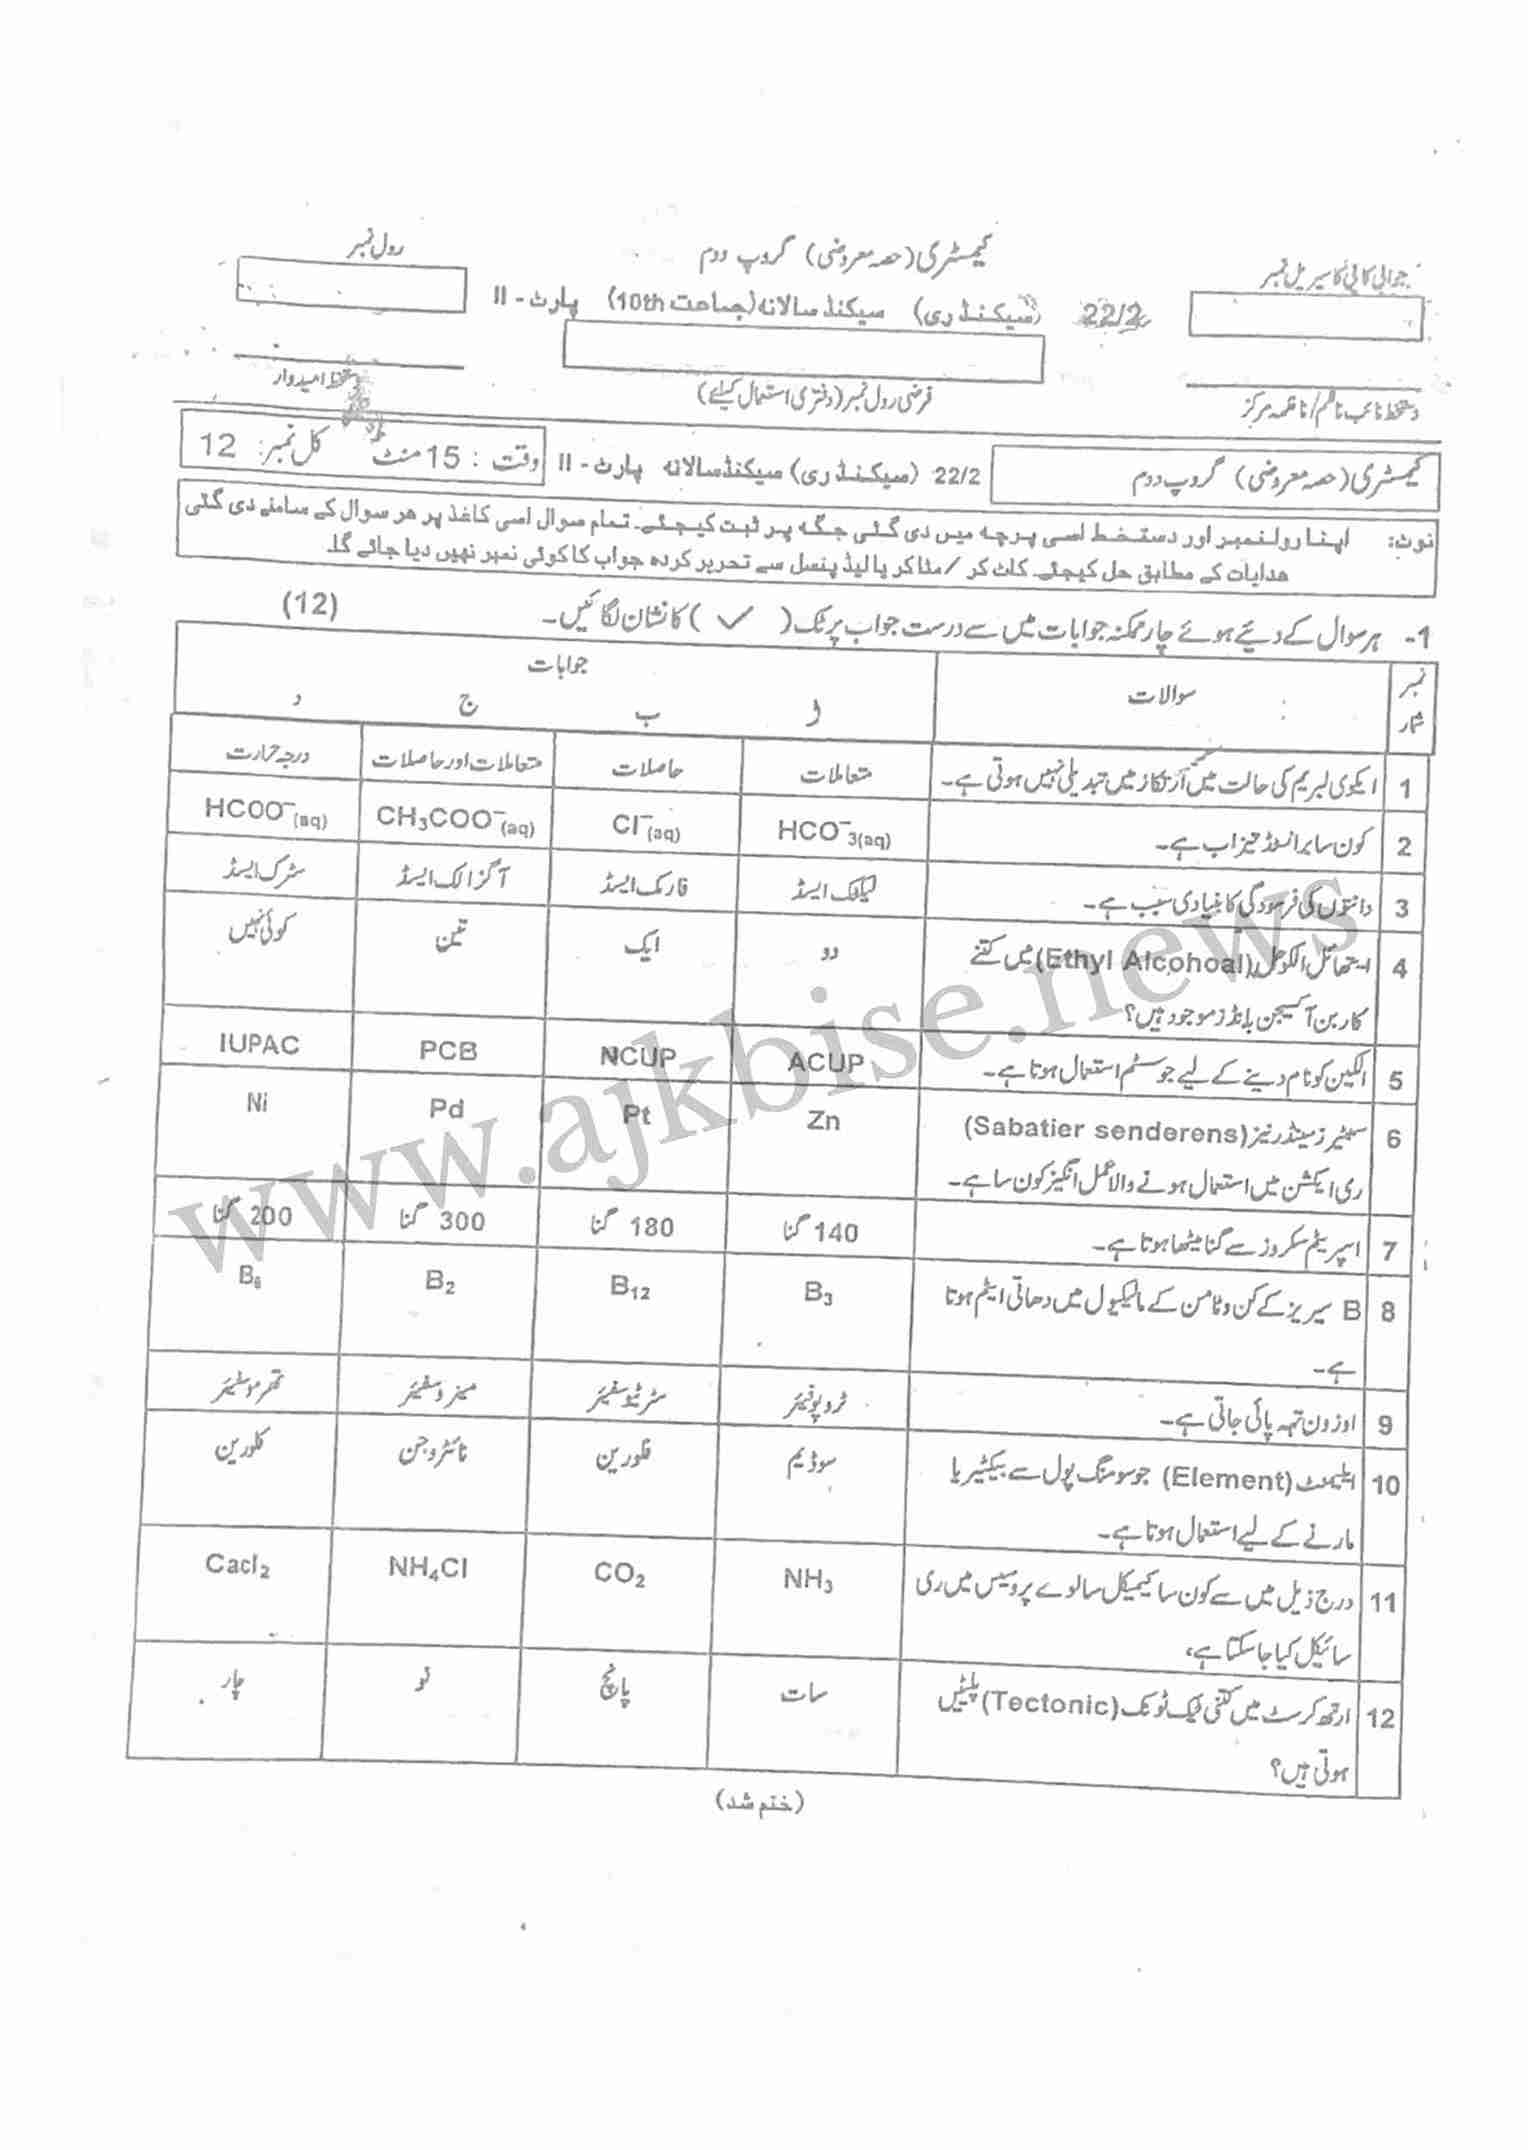 کیمسٹری (حصہ معروضی) گروپ دوم
رول نمبر
جوابی کاپی کا سیریل نمبر
22/2 (سیکنڈری) سیکنڈ سالانہ (جماعت 10th) پارٹ - II
دستخط امیدوار
فرضی رول نمبر (دفتری استعمال کیلئے)
دستخط نائب ناظم/ناظمہ مرکز
کیمسٹری (حصہ معروضی) گروپ دوم
22/2 (سیکنڈری) سیکنڈ سالانہ پارٹ - II
وقت : 15 منٹ کل نمبر: 12
نوٹ: اپنا رولنمبر اور دستخط اسی پرچہ میں دی گئی جگہ پر ثبت کیجئے۔ تمام سوال اسی کاغذ پر ھر سوال کے سامنے دی گئی
ھدایات کے مطابق حل کیجئے۔ کاٹ کر /مٹا کر یا لیڈ پنسل سے تحریر کردہ جواب کا کوئی نمبر نھیں دیا جائے گا۔
1- ہر سوال کے دیئے ہوئے چار ممکنہ جوابات میں سے درست جواب پر ٹک ( ✓ ) کا نشان لگائیں۔ (12)
نمبر شمار سوالات جوابات
ا ب ج د
1 ایکوی لبریم کی حالت میں ارتکاز میں تبدیلی نہیں ہوتی ہے۔ متعاملات حاصلات متعاملات اور حاصلات درجہ حرارت
2 کون سا برانسٹڈ تیزاب ہے۔ HCO⁻₃(aq) Cl⁻(aq) CH₃COO⁻(aq) HCOO⁻(aq)
3 دانتوں کی فرسودگی کا بنیادی سبب ہے۔ لیکٹک ایسڈ فارمک ایسڈ آگزالک ایسڈ سٹرک ایسڈ
4 ایتھائل الکوحل (Ethyl Alcohoal) میں کتنے دو ایک تین کوئی نہیں
کاربن آکسیجن بانڈز موجود ہیں؟
5 الکین کو نام دینے کے لیے جو سسٹم استعمال ہوتا ہے۔ ACUP NCUP PCB IUPAC
6 سبیٹیرز سینڈرنیز (Sabatier senderens) Zn Pt Pd Ni
ری ایکشن میں استعمال ہونے والا عمل انگیز کون سا ہے۔
7 اسپریٹم سکروز سے گنا میٹھا ہوتا ہے۔ 140 گنا 180 گنا 300 گنا 200 گنا
8 B سیریز کے کن وٹامن کے مالیکیول میں دھاتی ایٹم ہوتا B₃ B₁₂ B₂ B₆
ہے۔
9 اوزون تہہ پائی جاتی ہے۔ ٹروپوفیئر سٹریٹوسفیئر میزوسفیئر تھرموسفیئر
10 ایلیمنٹ (Element) جو سومنگ پول سے بیکٹیریا سوڈیم فلورین نائٹروجن کلورین
مارنے کے لیے استعمال ہوتا ہے۔
11 درج ذیل میں سے کون سا کیمیکل سالوے پروسیس میں ری NH₃ CO₂ NH₄Cl Cacl₂
سائیکل کیا جا سکتا ہے،
12 ارتھ کرسٹ میں کتنی ٹیک ٹونک (Tectonic) پلیٹیں سات پانچ نو چار
ہوتی ہیں؟
(ختم شد)
www.ajkbise.news